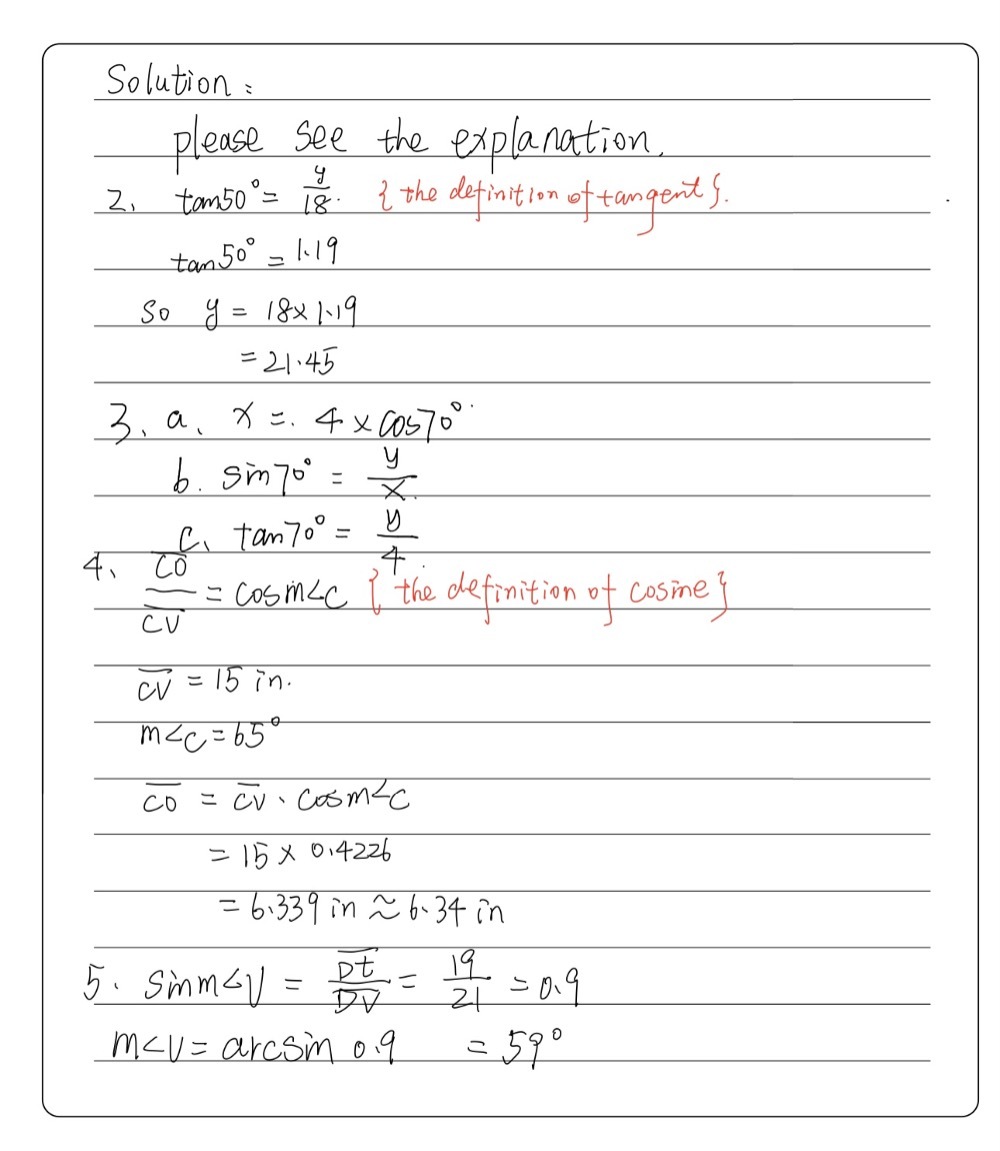 Solution:
please see the explanation.
2、 tan50° = y/18. {the definition of tangent}.
tan50° = 1.19
So y = 18×1.19
= 21.45
3、a、 x =. 4×cos70°.
b. sin70° = y/x.
c、 tan70° = y/4.
4、 C̅O̅/C̅V̅ = cosm∠C {the definition of cosine}
C̅V̅ = 15 in.
m∠C = 65°
C̅O̅ = C̅V̅ · cosm∠C
= 15 × 0.4226
= 6.339 in ≈ 6.34 in
5. sinm∠V = D̅t̅/D̅V̅ = 19/21 = 0.9
m∠V = arcsin 0.9 = 59°